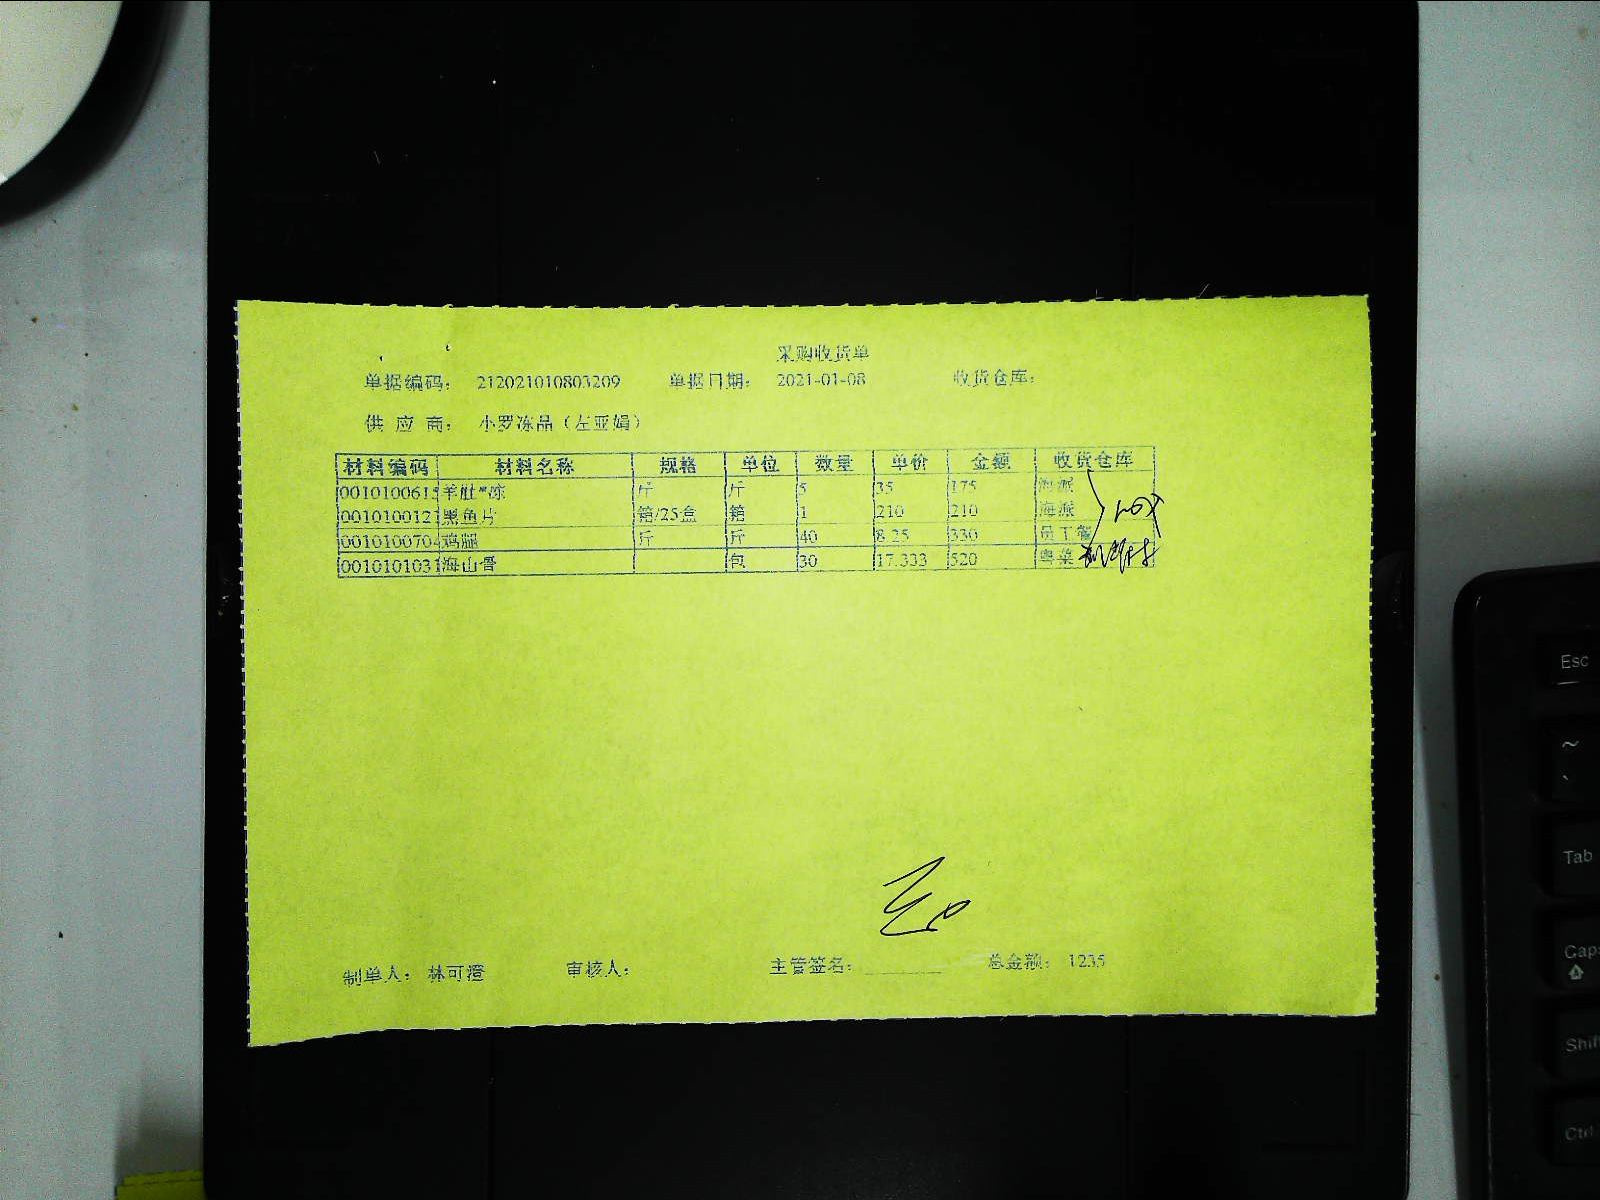 采购收货单
单据编码： 212021010803209 单据日期： 2021-01-08 收货仓库：
供 应 商： 小罗冻品（左亚娟）
材料编码 材料名称 规格 单位 数量 单价 金额 收货仓库
001010061 羊肚*冻 斤 斤 5 35 175 海派
001010012 黑鱼片 箱/25盒 箱 1 210 210 海派
001010070 鸡腿 斤 斤 40 8.25 330 员工餐
001010103 海山骨 包 30 17.333 520 粤菜
制单人： 林可澄 审核人： 主管签名： 总金额： 1235
Esc
~
`
Tab
Caps
Shift
Ctrl